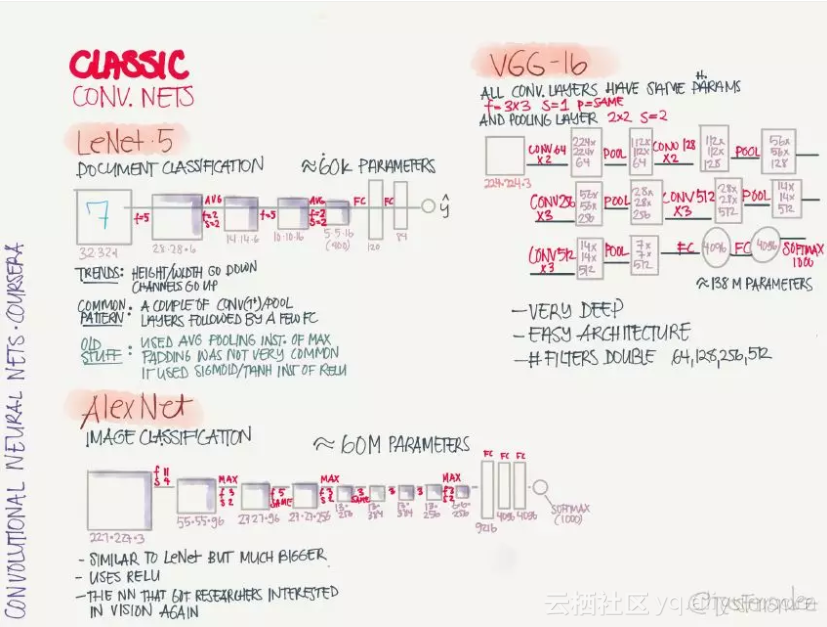 CLASSIC
CONV. NETS
LeNet-5
DOCUMENT CLASSIFICATION ≈60K PARAMETERS
7
f=5
AVG
f=2
S=2
f=5
AVG
f=2
S=2
FC
FC
ŷ
32·32·1
28·28·6
14·14·6
10·10·16
5·5·16
(400)
120
84
TRENDS: HEIGHT/WIDTH GO DOWN
CHANNELS GO UP
COMMON PATTERN: A COUPLE OF CONV(1+)/POOL
LAYERS FOLLOWED BY A FEW FC
OLD STUFF: USED AVG POOLING INST. OF MAX
PADDING WAS NOT VERY COMMON
IT USED SIGMOID/TANH INST OF RELU
AlexNet
IMAGE CLASSIFICATION ≈60M PARAMETERS
f 11
S 4
MAX
f 3
S 2
f 5
SAME
MAX
f 3
S 2
3
SAME
3
3
MAX
f 3
S 2
FC
FC
FC
227·227·3
55·55·96
27·27·96
27·27·256
13·
256
13·
384
13·
384
13·
256
6·6·
256
9216
4096
4096
SOFTMAX
(1000)
- SIMILAR TO LeNet BUT MUCH BIGGER
- USES RELU
- THE NN THAT GOT RESEARCHERS INTERESTED
IN VISION AGAIN
VGG-16
ALL CONV. LAYERS HAVE SAME H. PARAMS
f=3x3 S=1 P=SAME
AND POOLING LAYER 2x2 S=2
224·224·3
CONV64
x2
224x
224x
64
POOL
112x
112x
64
CONV128
x2
112x
112x
128
POOL
56x
56x
128
CONV256
x3
56x
56x
256
POOL
28x
28x
256
CONV512
x3
28x
28x
512
POOL
14x
14x
512
CONV512
x3
14x
14x
512
POOL
7x
7x
512
FC
4096
FC
4096
SOFTMAX
1000
≈138M PARAMETERS
- VERY DEEP
- EASY ARCHITECTURE
- # FILTERS DOUBLE 64,128,256,512
CONVOLUTIONAL NEURAL NETS · COURSERA
云栖社区